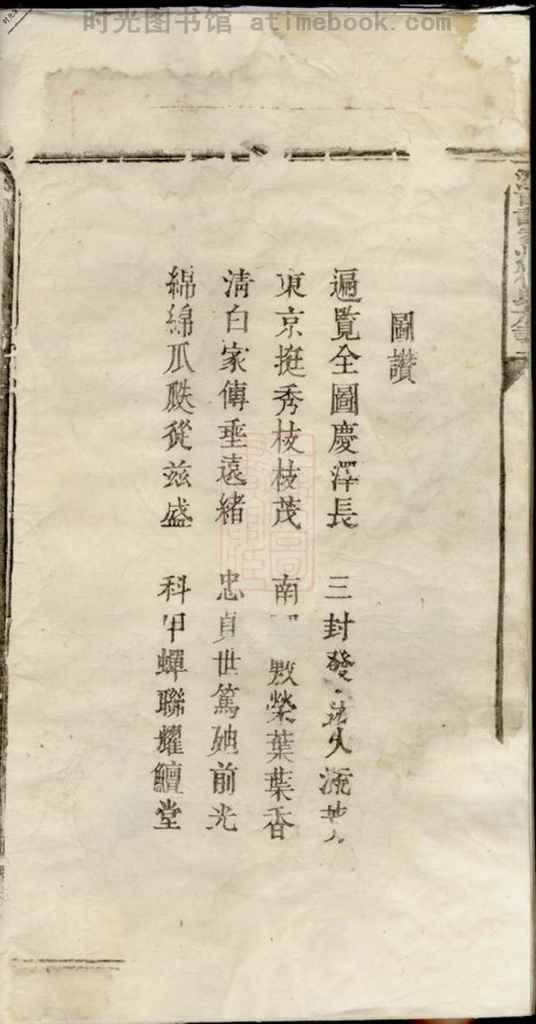 时光图书馆 - atimebook.com
圖讚
遍覽全圖慶澤長 三封發
東京挺秀枝枝茂 南 敷榮葉葉香
淸白家傳垂遠緒 忠貞世篤廸前光
綿綿瓜瓞從兹盛 科甲蟬聯耀鱣堂